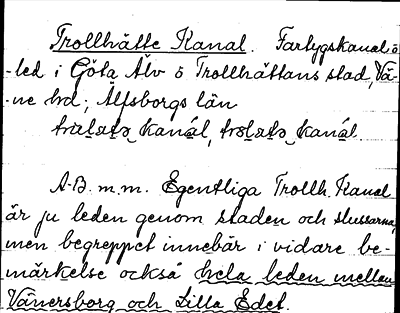 Trollhätte Kanal. Fartygskanal ö
-led i Göta Älv ö Trollhättans stad, Vä-
-ne hd; Älfsborgs län
kanál, kanál.
A.B. m.m. Egentliga Trollh. Kanal
är ju leden genom staden och slussarna,
men begreppet innebär i vidare be-
märkelse också hela leden mellan
Vänersborg och Lilla Edet.